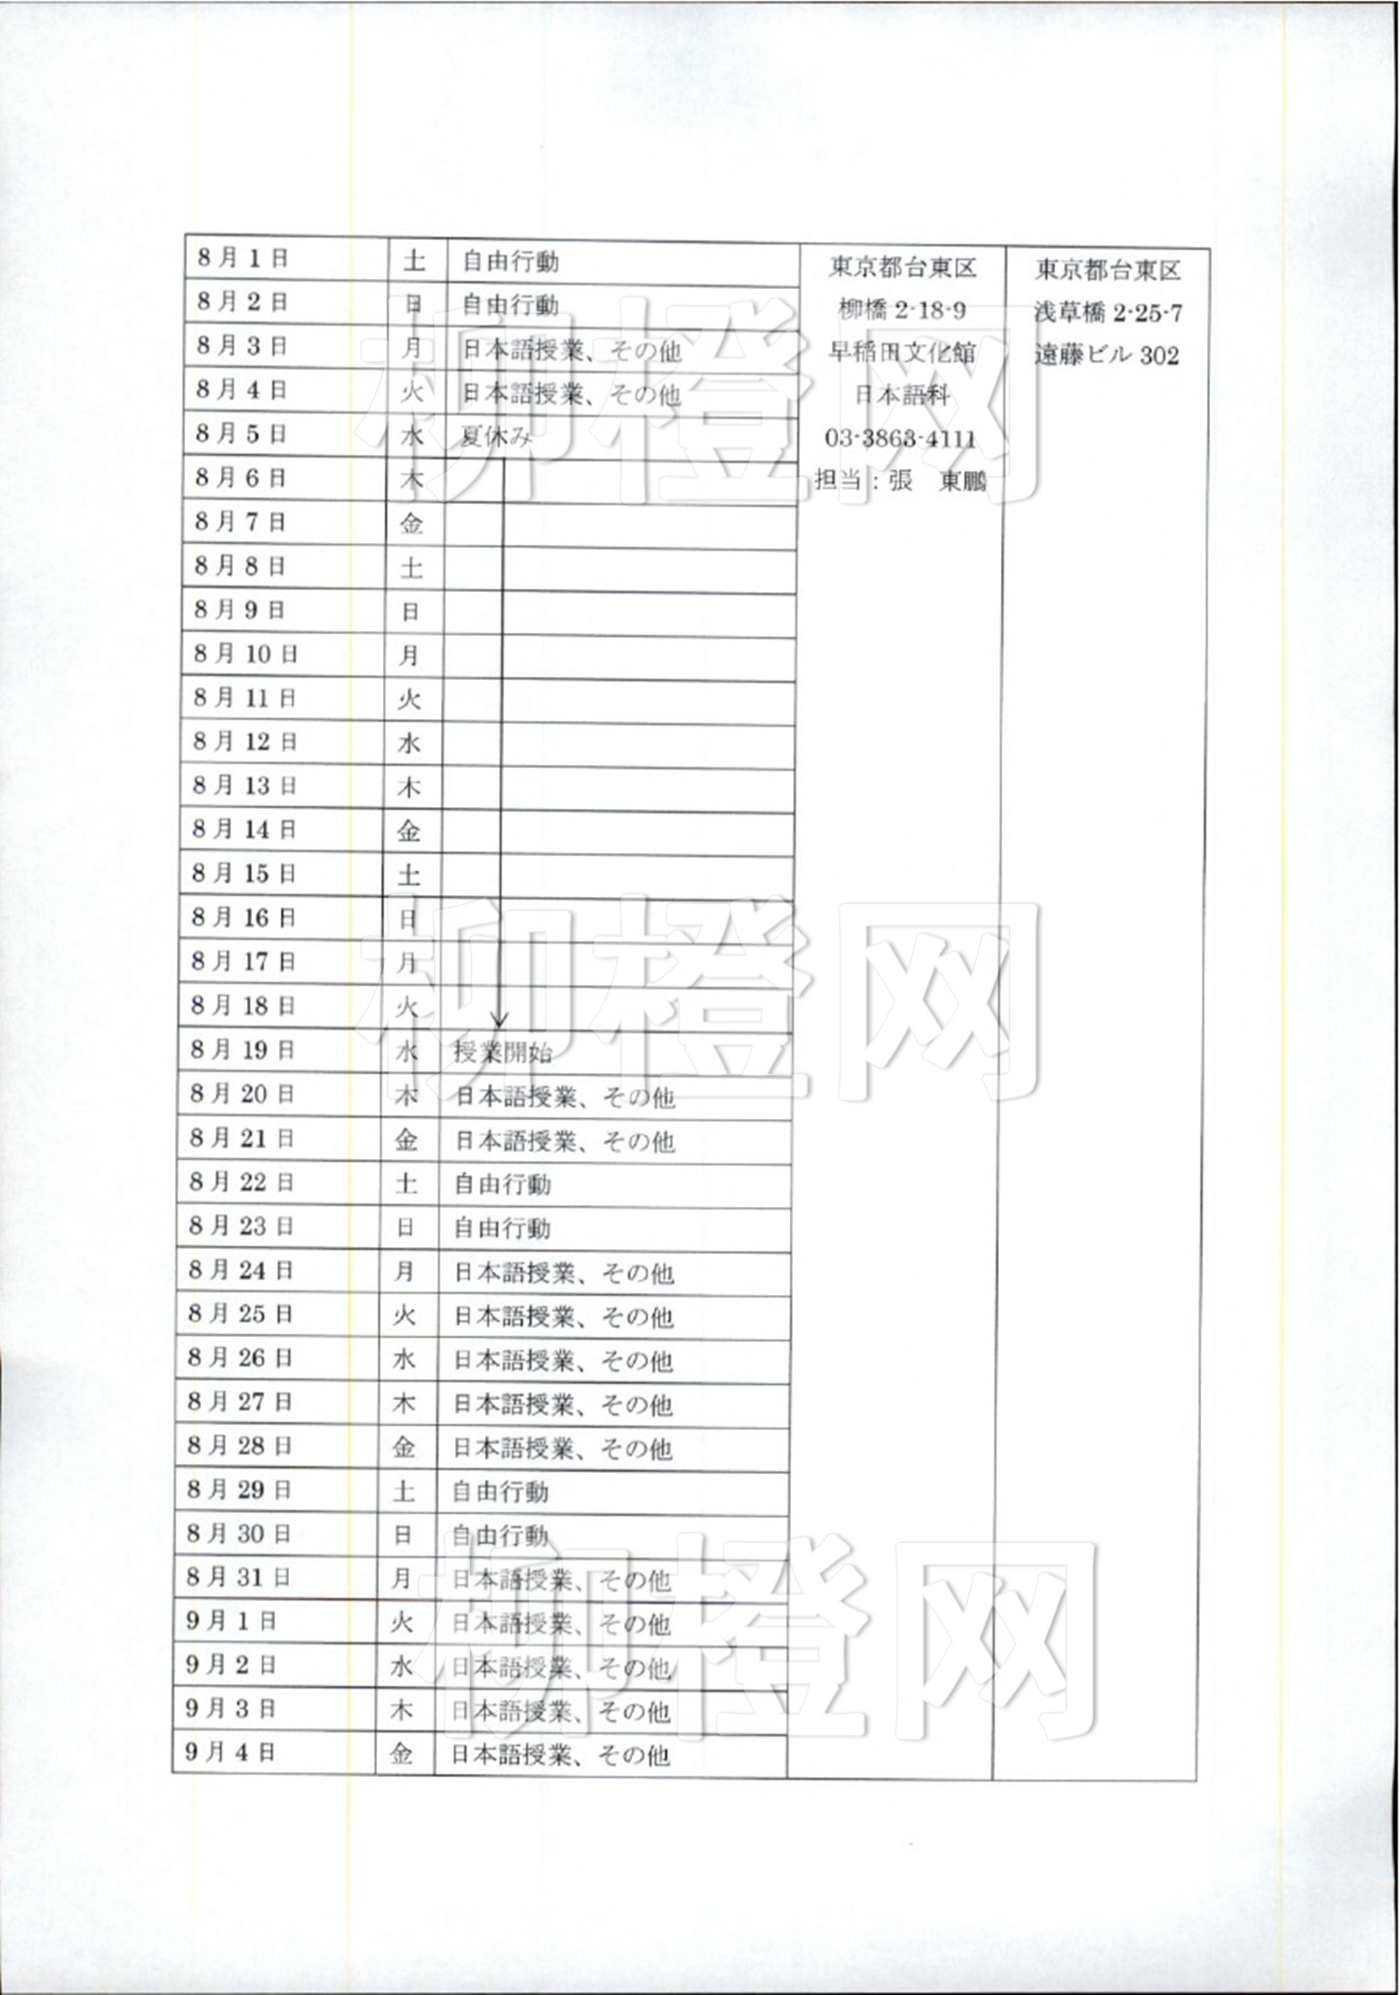 8月1日 土 自由行動
8月2日 日 自由行動
8月3日 月 日本語授業、その他
8月4日 火 日本語授業、その他
8月5日 水 夏休み
8月6日 木
8月7日 金
8月8日 土
8月9日 日
8月10日 月
8月11日 火
8月12日 水
8月13日 木
8月14日 金
8月15日 土
8月16日 日
8月17日 月
8月18日 火
8月19日 水 授業開始
8月20日 木 日本語授業、その他
8月21日 金 日本語授業、その他
8月22日 土 自由行動
8月23日 日 自由行動
8月24日 月 日本語授業、その他
8月25日 火 日本語授業、その他
8月26日 水 日本語授業、その他
8月27日 木 日本語授業、その他
8月28日 金 日本語授業、その他
8月29日 土 自由行動
8月30日 日 自由行動
8月31日 月 日本語授業、その他
9月1日 火 日本語授業、その他
9月2日 水 日本語授業、その他
9月3日 木 日本語授業、その他
9月4日 金 日本語授業、その他
東京都台東区
柳橋 2-18-9
早稲田文化館
日本語科
03-3863-4111
担当：張　東鵬
東京都台東区
浅草橋 2-25-7
遠藤ビル 302
柳橙网
柳橙网
柳橙网